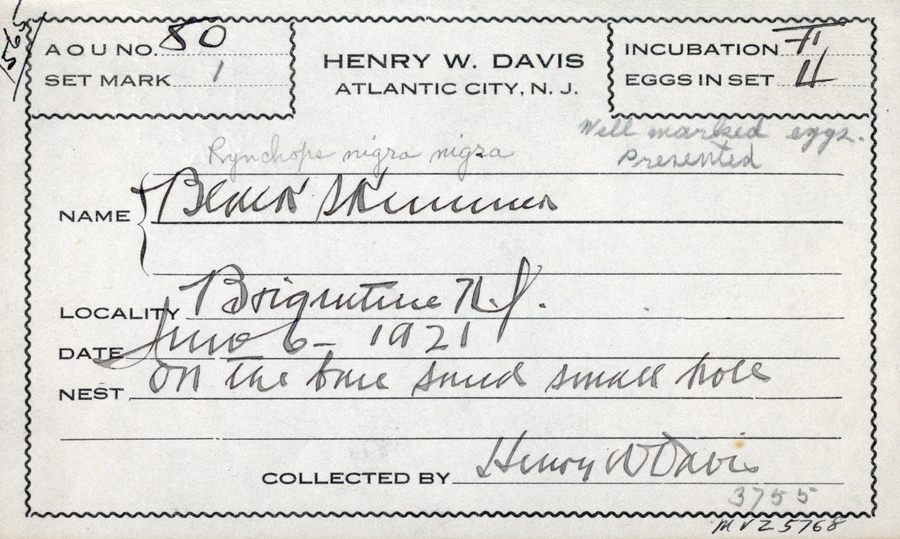 565
A O U NO. 80
SET MARK 1
HENRY W. DAVIS
ATLANTIC CITY, N. J.
INCUBATION
EGGS IN SET 4
Well marked eggs.
Presented
Rynchops nigra nigra
NAME Black Skimmer
LOCALITY Brigantine N.J.
DATE June 6 - 1921
NEST On the bare sand small hole
COLLECTED BY Henry W Davis
3755
MVZ 5768